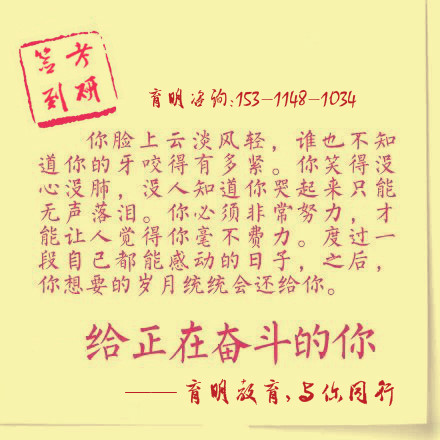 考研
签到
育明咨询:153-1148-1034
你脸上云淡风轻，谁也不知
道你的牙咬得有多紧。你笑得没
心没肺，没人知道你哭起来只能
无声落泪。你必须非常努力，才
能让人觉得你毫不费力。度过一
段自己都能感动的日子，之后，
你想要的岁月统统会还给你。
给正在奋斗的你
——育明教育,与你同行